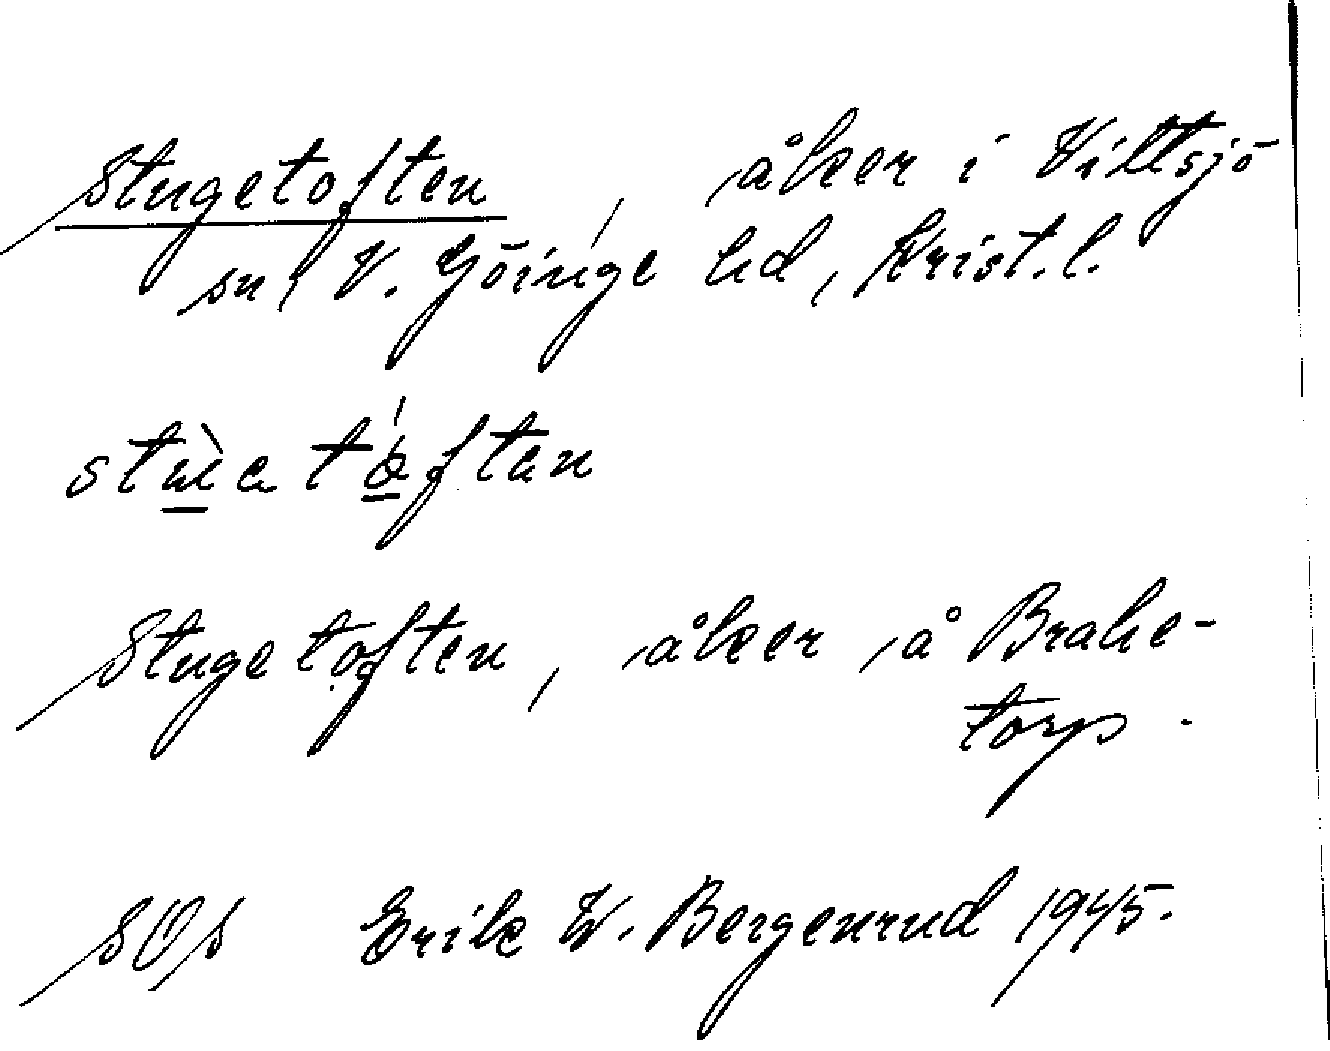 Stugetoften, åker i Vittsjö
sn, V. Göinge hd, Krist. l.
Stugetoften, åker å Brahe-
torp.
SOS Erik W. Bergenrud 1945.